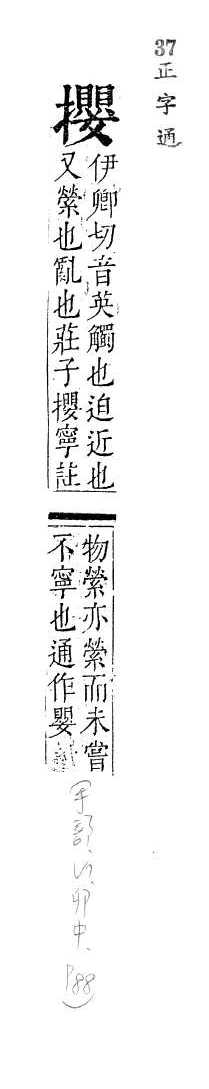 37
正字通
攖
伊卿切音英觸也迫近也
又縈也亂也莊子攖寧註
物縈亦縈而未嘗
不寧也通作嬰
手部、
卯中、
P88